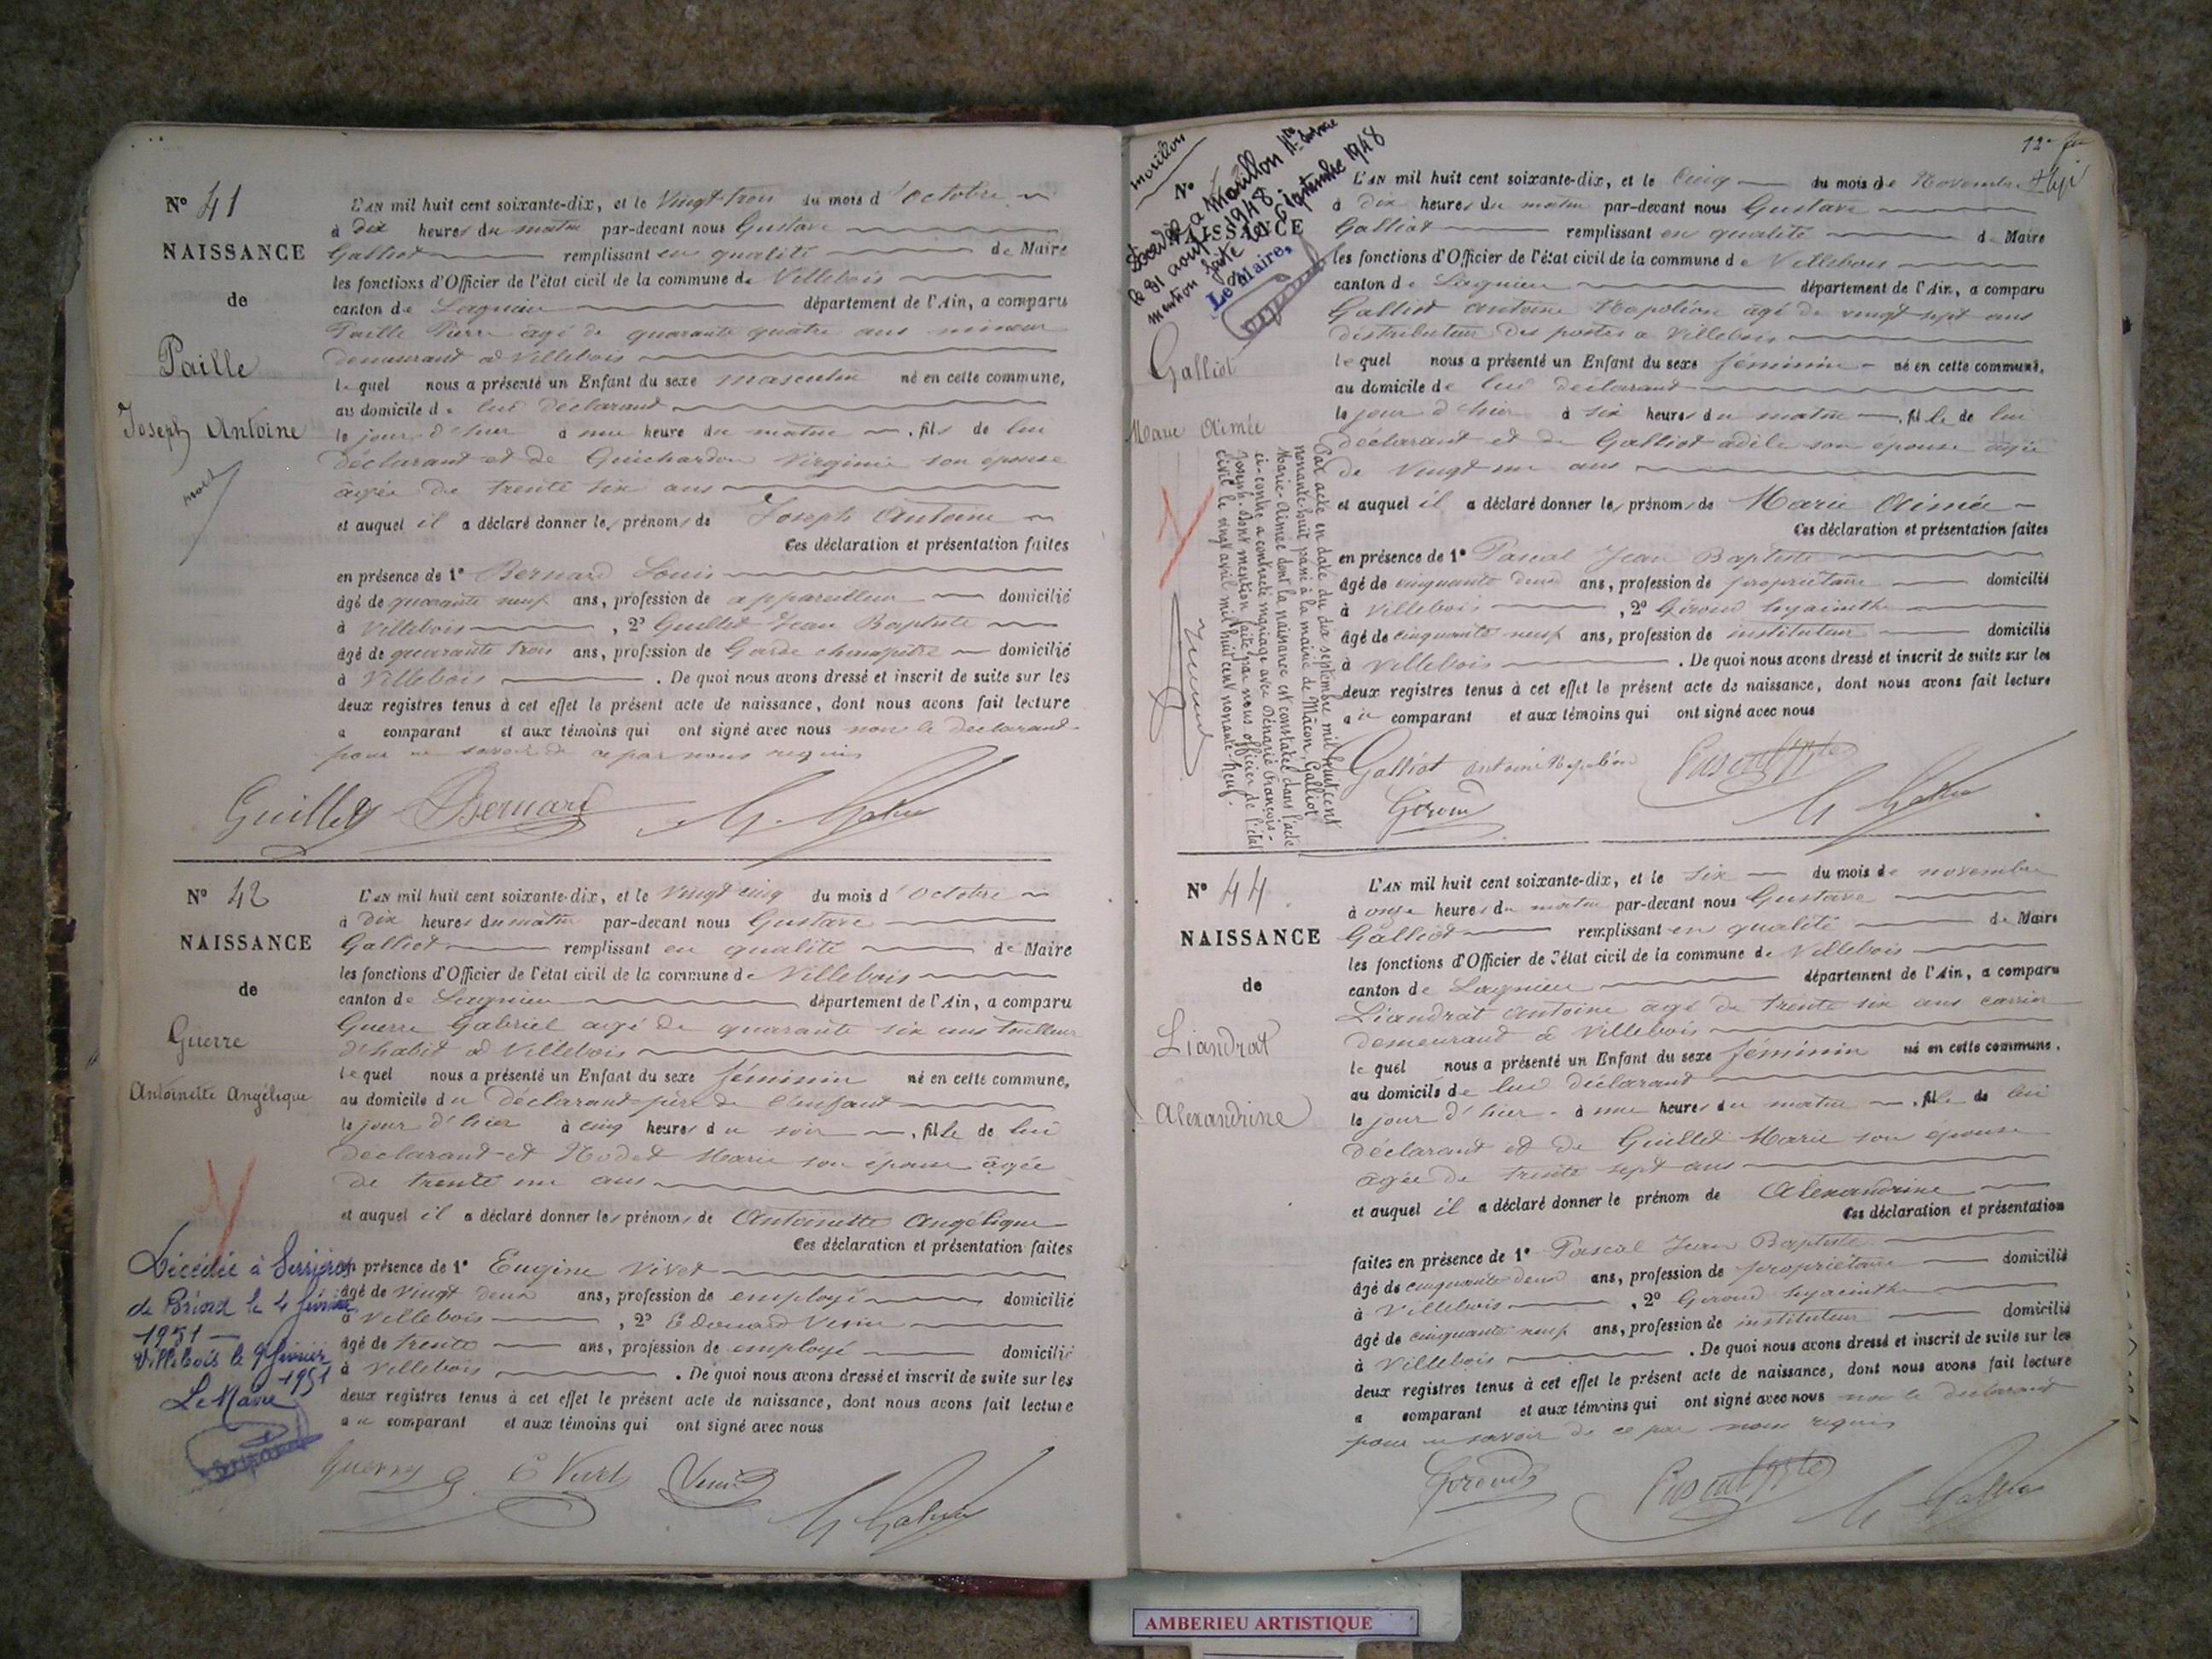 N° 41
NAISSANCE
de
Paille
Joseph Antoine
mort
L'AN mil huit cent soixante-dix, et le Vingt trois du mois d'Octobre
à dix heures du matin par-devant nous Gustave
Galliot remplissant en qualité de Maire
les fonctions d'Officier de l'état civil de la commune de Villebois
canton de Lagnieu département de l'Ain, a comparu
Paille Pierre agé de quarante quatre ans mineur
demeurant à Villebois
lequel nous a présenté un Enfant du sexe masculin né en cette commune,
au domicile de lui déclarant
le jour d'hier à une heure du matin, fils de lui
déclarant et de Guichardon Virginie son épouse
agée de trente six ans
et auquel il a déclaré donner les prénoms de Joseph Antoine
Ces déclaration et présentation faites
en présence de 1° Bernard Louis
âgé de quarante neuf ans, profession de appareilleur domicilié
à Villebois, 2° Guillet Jean Baptiste
âgé de quarante trois ans, profession de Garde champêtre domicilié
à Villebois. De quoi nous avons dressé et inscrit de suite sur les
deux registres tenus à cet effet le présent acte de naissance, dont nous avons fait lecture
a comparant et aux témoins qui ont signé avec nous non le déclarant
pour ne savoir de ce par nous requis
Guillet Bernard G. Galliot
N° 42
NAISSANCE
de
Guerre
Antoinette Angélique
Décédée à Serrières
de Briord le 4 février
1951
Villebois le 9 février
1951
Le Maire
L'AN mil huit cent soixante-dix, et le vingt cinq du mois d'Octobre
à dix heures du matin par-devant nous Gustave
Galliot remplissant en qualité de Maire
les fonctions d'Officier de l'état civil de la commune de Villebois
canton de Lagnieu département de l'Ain, a comparu
Guerre Gabriel agé de quarante six ans tailleur
d'habit à Villebois
lequel nous a présenté un Enfant du sexe féminin né en cette commune,
au domicile du déclarant père de l'enfant
le jour d'hier à cinq heures du soir, fille de lui
déclarant et Nodet Marie son épouse âgée
de trente un ans
et auquel il a déclaré donner les prénoms de Antoinette Angélique
Ces déclaration et présentation faites
en présence de 1° Eugène Vivet
âgé de vingt deux ans, profession de employé domicilié
à Villebois, 2° Edouard
âgé de trente ans, profession de employé domicilié
à Villebois. De quoi nous avons dressé et inscrit de suite sur les
deux registres tenus à cet effet le présent acte de naissance, dont nous avons fait lecture
au comparant et aux témoins qui ont signé avec nous
G. Galliot
12e
morillon
N°
NAISSANCE
Décédée à Morillon Hte Savoie
le 31 août 1948
mention faite le 6 septembre 1948
Le Maire,
Galliot
Marie Aimée
Par acte en date du dix septembre mil huit cent
nonante-huit passé à la mairie de Mâcon, Galliot
Marie-Aimée dont la naissance est constatée dans l'acte
ci-contre a contracté mariage avec Dénarié François-
Joseph. Dont mention faite par nous officier de l'état
civil le vingt avril mil huit cent nonante-neuf.
L'AN mil huit cent soixante-dix, et le Cinq du mois de Novembre
à dix heures du matin par-devant nous Gustave
Galliot remplissant en qualité de Maire
les fonctions d'Officier de l'état civil de la commune de Villebois
canton de Lagnieu département de l'Ain, a comparu
Galliot Antoine Napoléon agé de vingt sept ans
distributeur des postes à Villebois
lequel nous a présenté un Enfant du sexe féminin né en cette commune,
au domicile de lui déclarant
le jour d'hier à six heures du matin, fille de lui
déclarant et de Galliot adèle son épouse agée
de vingt un ans
et auquel il a déclaré donner les prénoms de Marie Aimée
Ces déclaration et présentation faites
en présence de 1° Pascal Jean Baptiste
âgé de cinquante deux ans, profession de propriétaire domicilié
à Villebois, 2° Giroud hyacinthe
âgé de cinquante neuf ans, profession de instituteur domicilié
à Villebois. De quoi nous avons dressé et inscrit de suite sur les
deux registres tenus à cet effet le présent acte de naissance, dont nous avons fait lecture
au comparant et aux témoins qui ont signé avec nous
Galliot Antoine Napoléon Pascal Bte
Giroud G Galliot
N° 44
NAISSANCE
de
Liandrat
Alexandrine
L'AN mil huit cent soixante-dix, et le six du mois de novembre
à onze heures du matin par-devant nous Gustave
Galliot remplissant en qualité de Maire
les fonctions d'Officier de l'état civil de la commune de Villebois
canton de Lagnieu département de l'Ain, a comparu
Liandrat Antoine agé de trente six ans carrier
demeurant à Villebois
lequel nous a présenté un Enfant du sexe féminin né en cette commune,
au domicile de lui déclarant
le jour d'hier à une heures du matin, fille de lui
déclarant et de Guillet Marie son épouse
agée de trente sept ans
et auquel il a déclaré donner le prénom de Alexandrine
Ces déclaration et présentation
faites en présence de 1° Pascal Jean Baptiste
âgé de cinquante deux ans, profession de propriétaire domicilié
à Villebois, 2° Giroud hyacinthe
âgé de cinquante neuf ans, profession de instituteur domicilié
à Villebois. De quoi nous avons dressé et inscrit de suite sur les
deux registres tenus à cet effet le présent acte de naissance, dont nous avons fait lecture
a comparant et aux témoins qui ont signé avec nous non le déclarant
pour ne savoir de ce par nous requis
Giroud Pascal Bte G Galliot
AMBERIEU ARTISTIQUE